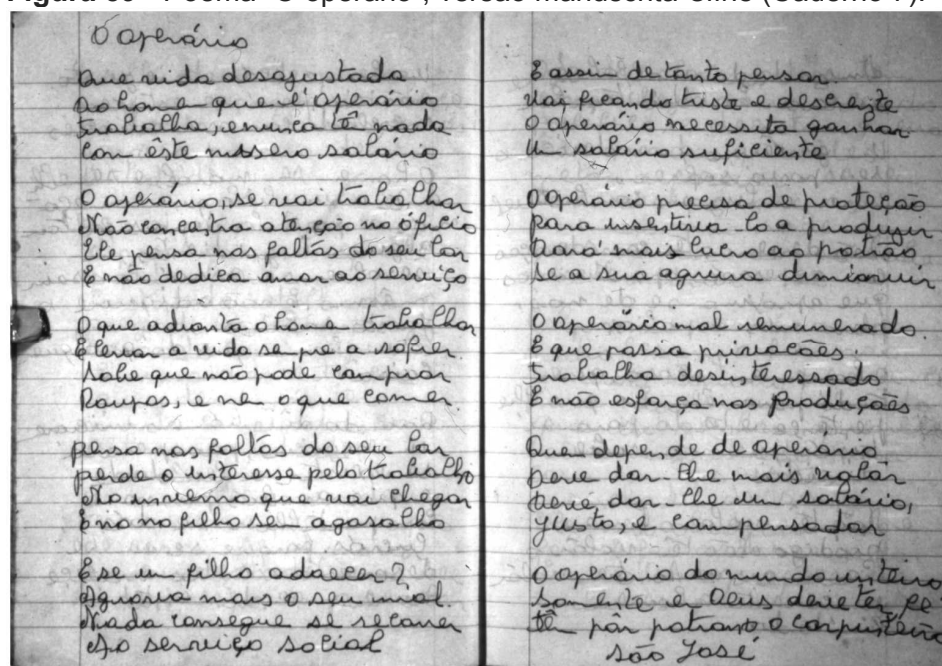 Figura Poema "O operário", versão manuscrita (Caderno 7).
O operário
Que vida desajustada
Do home que é operário
Trabalha, e nunca tê nada
Con êste missero salário
O operário, se vai trabalhar
Não concentra atenção no ófício
Ele pensa nas faltas do seu lar
E não dedica amor ao serviço
O que adianta o home trabalhar
E levar a vida sempre a sofrer.
Sabe que não pode comprar
Roupas, e ne o que comer
pensa nas faltas do seu lar
perde o interesse pelo trabalho
No inverno que vai chegar
E no no filho sem agasalho
E se um filho adoecer?
Agrava mais o seu mal.
Nada consegue se recorrer
Ao serviço social
E assim de tanto pensar.
Vai ficando triste e descrente
O operário necessita ganhar
Um salário suficiente
O operário precisa de proteção
para insentiva-lo a produzir
Dará mais lucro ao patrão
Se a sua agrura diminuir
O operário mal remunerado.
E que passa privações.
Trabalha desinteressado
E não esforça nas produções
Quem depende de operário
Deve dar-lhe mais valôr
Deve dar-lhe um salário,
justo, e compensador
O operário do mundo inteiro
Somente em Deus deve ter fé
têm pôr patrono o carpinteiro
São José